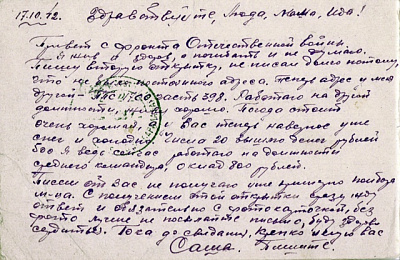 17.10.42. Здравствуйте, Люда, Мама, Ида!
Привет с фронта Отечественной войны.
Я жив и здоров, о погибать и не думаю.
Пишу вторую открытку, не писал долго потому,
что не постоянного адреса. Теперь адрес и мой
другой часть 398. Работаю на другой
должности хорошо. Погода стоит
очень хорошая, у Вас теперь наверное уже
снег и холодно. Числа 20 вышлю денег рублей
600. Я ведь сейчас работаю на должности
среднего командира, оклад 800 рублей.
Писем от Вас не получаю уже
м-ца. С получением этой открытки сразу жду
ответ и обязательно с фотокарточкой, без
фото лучше не посылайте письма, буду здорово
сердиться. Пока до свидания. Крепко целую вас
Саша. Пишите.